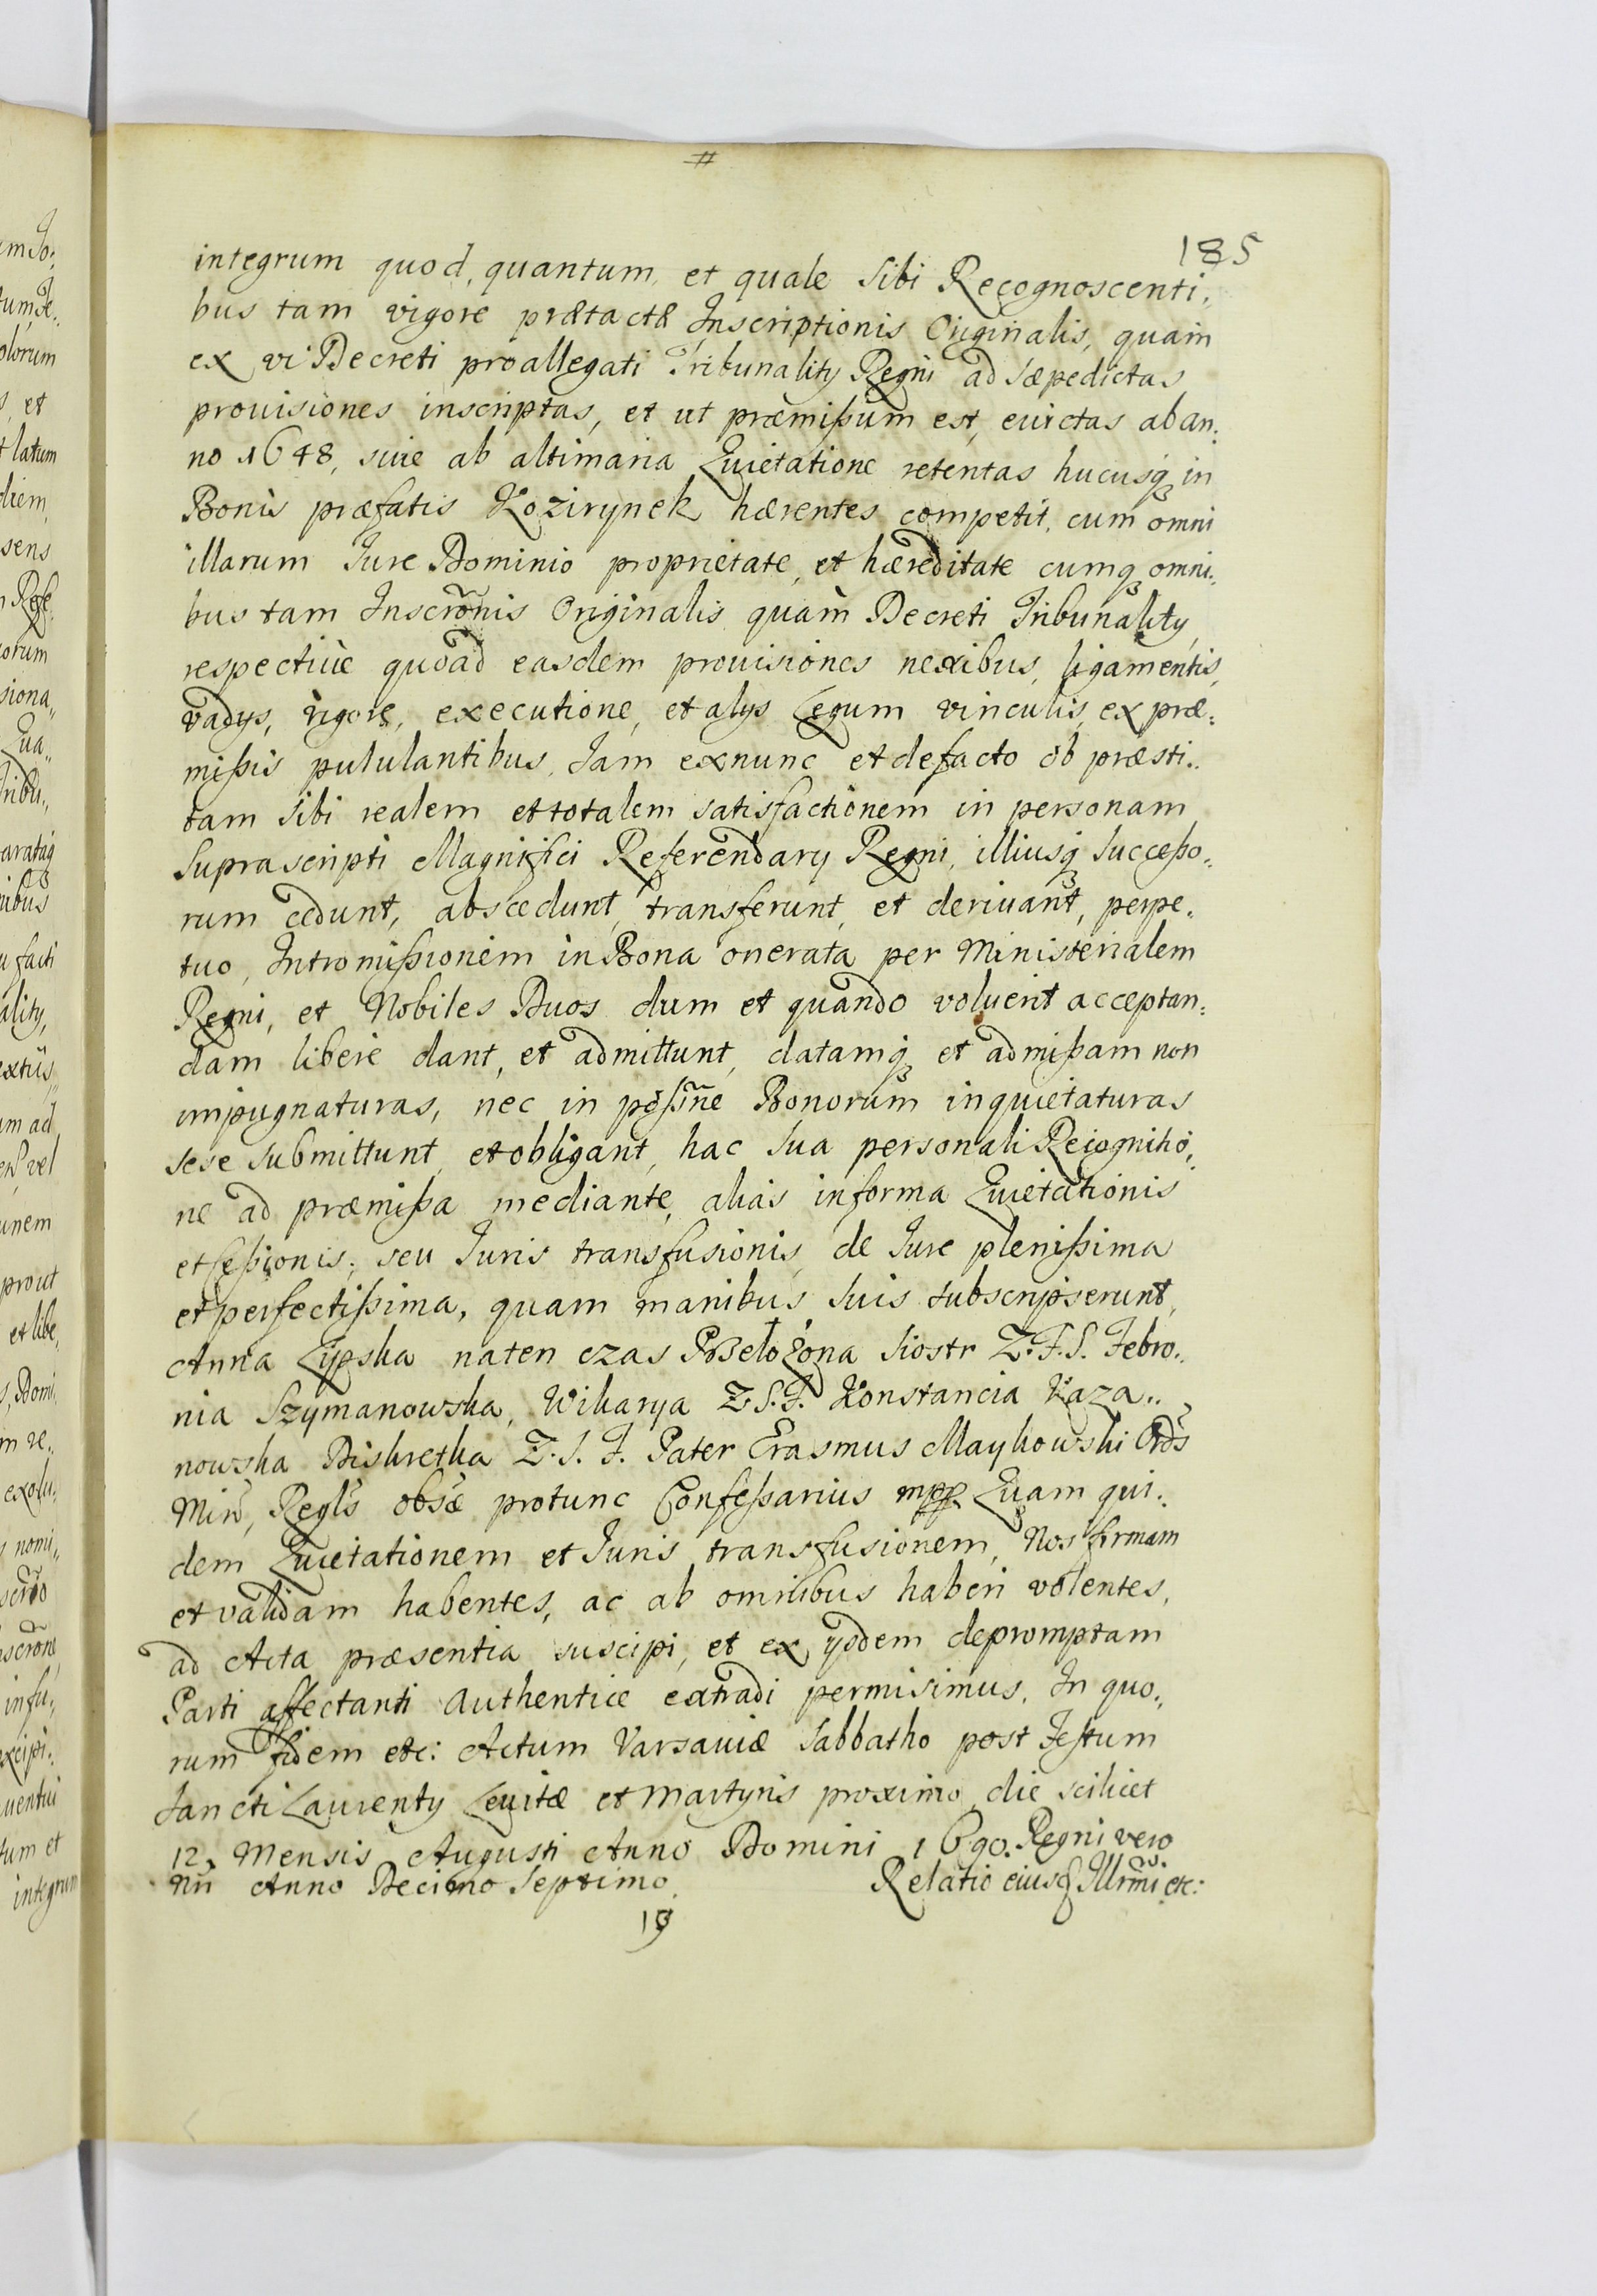 #
185
integrum quod, quantum, et quale sibi Recognoscenti,
bus tam vigore prætactæ Inscriptionis Originalis, quam
ex vi Decreti proallegati Tribunality Regni ad sæpedictas
prouisiones inscriptas, et ut præmißum est, euictas ab an:
no 1648, siue ab altimaria Quietatione retentas hucusq in
Bonis præfatis Kozirynek hærentes competit, cum omni
illarum Jure Dominio proprietate, et hæreditate cumq omni:
bus tam Inscrõnis Originalis quam Decreti Tribunality
respectiue quoad easdem prouisiones nexibus, ligamentis,
vadys, rigore, executione, et alys Legum vinculis, ex præ:
mißis pululantibus, Jam exnunc et defacto ob præsti..
tam sibi realem et totalem satisfactionem in personam
suprascripti Magnifici Referendary Regni, illiusq succeßo:
rum cedunt, abscedunt, transferunt, et deriuant, perpe:
tuo, Intromißionem in Bona onerata per Ministerialem
Regni, et Nobiles Duos dum et quando voluerit acceptan:
dam libere dant, et admittunt, datamq et admißam non
impugnaturas, nec in poßi̅ne Bonorum inquietaturas
sese submittunt, et obligant, hac sua personali Recognitio,
ne ad præmißa mediante, alias in forma Quietationis
et Ceßionis, seu Juris transfusionis, de Jure plenißima
et perfectißima, quam manibus suis subscripserunt,
Anna Lipska naten czas Przełozona Siostr Z. F. S. Febro..
nia Szymanowska, Wikarya Z. S. F. Konstancia Kaza..
nowska Diskretka Z. S. F. Pater Erasmus Maykowski Ord̃s
Miñ, Reglis obsæ protunc Confeßarius mpp. Quam qui:
dem Quietationem et Juris transfusionem, Nos firmam
et validam habentes, ac ab omnibus haberi volentes,
ad Acta præsentia suscipi, et ex ysdem depromptam
Parti affectanti authentice extradi permisimus. In quo:
rum fidem etc: Actum Varsauiæ Sabbatho post Festum
Sancti Laurenty Leuitæ et Martyris proximo, die scilicet
12. Mensis Augusti Anno Domini 1690. Regni vero
Nri Anno Decimo Septimo. Relatio eiusq Illrmi etc:
19